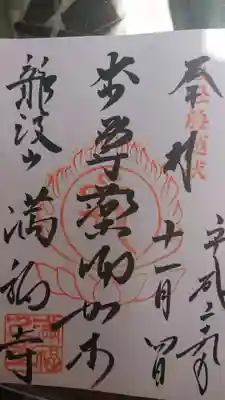 奉拝
平成二十九年
十一月四日
本尊薬師如来
龍護山
満福寺